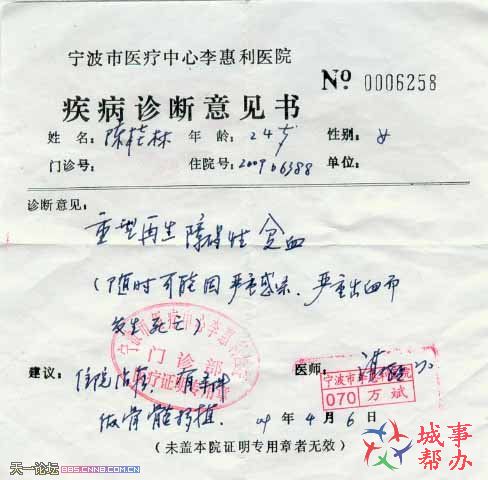 宁波市医疗中心李惠利医院
No. 0006258
疾病诊断意见书
姓名: 陈桂林 年龄: 24岁 性别: 女
门诊号: 住院号: 200906388 单位:
诊断意见:
重型再生障碍性贫血
(随时可能因严重感染、严重出血而
发生死亡)
宁波市医疗中心李惠利医院
门诊部
医疗证明专用章
建议: 住院治疗,有条件 医师:
宁波市李惠利医院
070 万斌
做骨髓移植. 09年4月6日
(未盖本院证明专用章者无效)
天一论坛 BBS.CNNB.COM.CN
城事
帮办